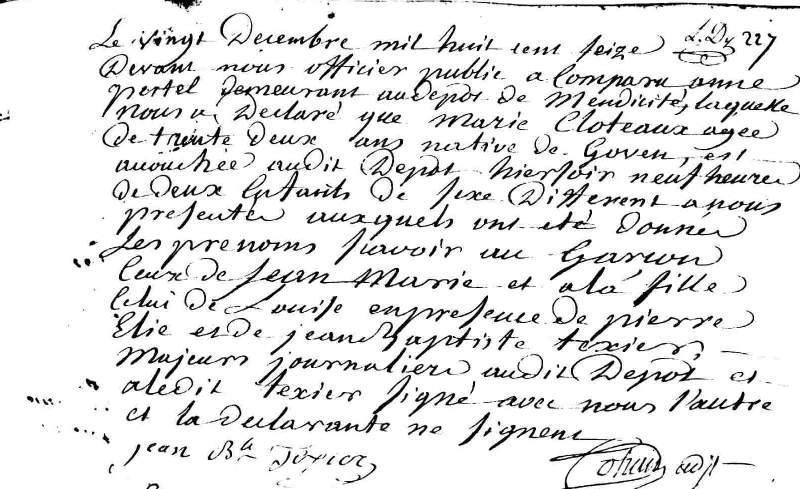 Le vingt Decembre mil huit cent seize L. Dx 227
Devant nous officier public a Comparu anne
portel demeurant au depot de Mendicité, laquelle
Nous a Declaré que Marie Cloteaux agee
de trente deux ans native de Goven, est
acouchée audit Depot hiersoir neuf heures
de deux Enfants de sexe Different a nous
presentés auxquels ont été donnés
Les prenoms scavoir au Garcon
Ceux de Jean Marie et a la fille
Celui de Louise en presence de pierre
Elie et de jean Baptiste texier,
Majeurs journaliers audit Depot et
a ledit texier signé avec nous l'autre
et la declarante ne signent
jean Bte Texier adjt